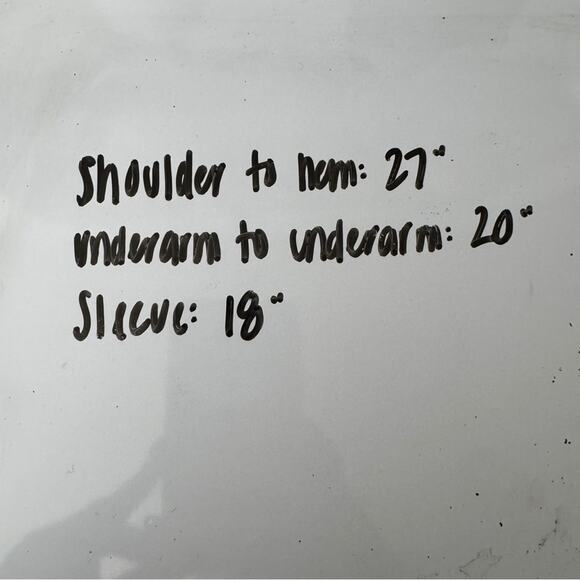 Shoulder to hem: 27"
underarm to underarm: 20"
Sleeve: 18"